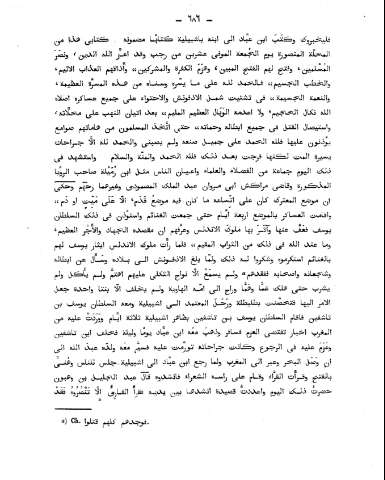 — ٦٨٦ —
فليخبروك وكتب ابن عبّاد الى ابنه باشبيلية كتابا مضمونه كتابى هذا من
المحلّة المنصورة يوم الجمعة الموفى عشرين من رجب وقد اعزّ الله الدين، ونصر
المسلمين، وفتح لهم الفتح المبين، وهزم الكفرة والمشركين، واذاقهم العذاب الاليم،
والخطب الجسيم، فالحمد لله على ما يسّره وسناه من هذه المسرّة العظيمة،
والنعمة الجسيمة، فى تشتيت شمل الاذفونش والاحتواء على جميع عساكره اصلاه
الله نكال الجحيم، ولا اعدمه الوبال العظيم المليم، بعد اتيان النهب على محلّاته،
واستيصال القتل فى جميع ابطاله وحماته، حتى اتّخذ المسلمون من هاماتهم صوامع
يوذنون عليها فلله الحمد على جميل صنعه ولم يصبنى والحمد لله الّا جراحات
يسيرة المت لكنها فرجت بعد ذلك فلله الحمد والمنّة والسلام واستشهد فى
ذلك اليوم جماعة من الفضلاء والعلماء واعيان الناس مثل ابن رُمَيْلة صاحب الرويا
المذكورة وقاضى مراكش ابى مروان عبد الملك المصمودى وغيرهما رحمهم وحكى
ان موضع المعترك كان على اتّساعه ما كان فيه موضع قدم، الّا على ميّت او دم،
واقامت العساكر بالموضع اربعة ايّام حتى جمعت الغنائم واستوذن فى ذلك السلطان
يوسف فعفّ عنها وآثر بها ملوك الاندلس وعرّفهم ان مقصده الجهاد والاجر العظيم،
وما عند الله فى ذلك من الثواب المقيم، فلما رأت ملوك الاندلس ايثار يوسف لهم
بالغنائم استكرموه وشكروا له ذلك ولمّا بلغ الاذفونش الى بلاده وسأل عن ابطاله
وشجعانه واصحابه ففقدهم ولم يسمع الّا نواح الثكلى عليهم اهتم ولم ياكل ولم
يشرب حتى هلك همّا وغمّا وراح الى امّه الهاوية ولم يخلف الّا بنتا واحدة جعل
الامر اليها فتحصّنت بطليطلة ورحل المعتمد الى اشبيلية ومعه السلطان يوسف بن
تاشفين فاقام السلطان يوسف بن تاشفين بظاهر اشبيلية ثلاثة ايّام ووردت عليه من
المغرب اخبار تقتضى العزم فسافر وذهب معه ابن عبّاد يوما وليلة فحلف ابن تاشفين
وعزم عليه فى الرجوع وكانت جراحاته تورّمت عليه فسيّر معه ولده عبد الله الى
ان وصل البحر وعبر الى المغرب ولما رجع ابن عبّاد الى اشبيلية جلس للناس وهُنّئ
بالفتح وقرأت القرّاء وقام على راسه الشعراء فانشدوه قال عبد الجليل بن وهبون
حضرت ذلك اليوم واعددت قصيدة انشدها بين يديه فقرأ القارئ الّا تنصروه فقد
a) Cb. فوجدهم كلهم قتلوا.